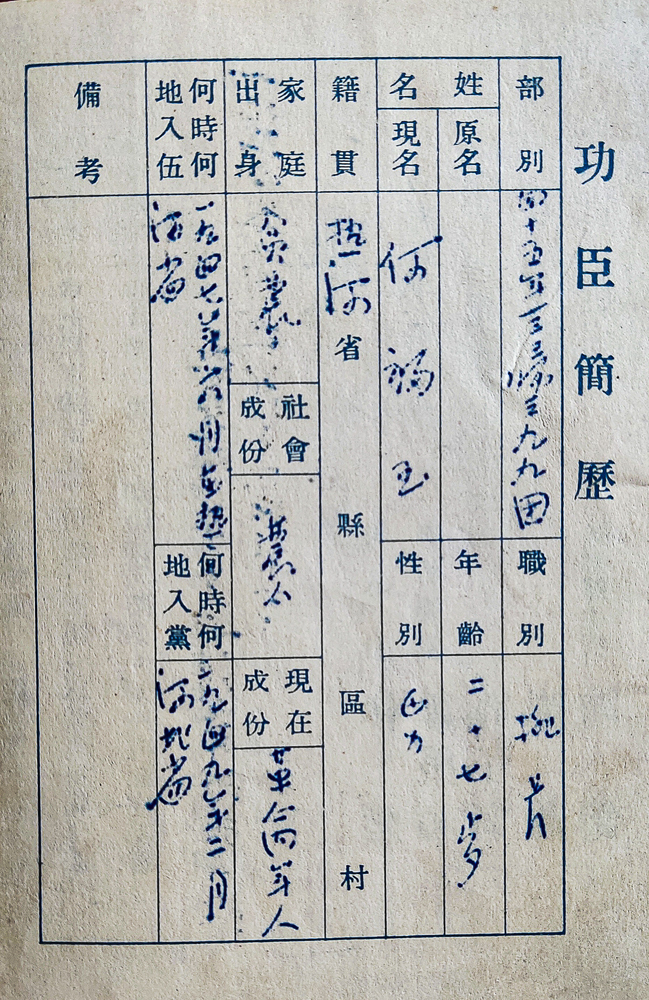 功臣簡歷
部別
四十五军一三三师三九九団
職別
排长
姓名
原名
年齡
二十七岁
現名
何福玉
性別
男
籍貫
热河省縣區村
家庭出身
贫農
社會成份
農人
現在成份
革命军人
何時何地入伍
一九四七年六月在热
河省
何時何地入黨
一九四九年二月
河北省
備考